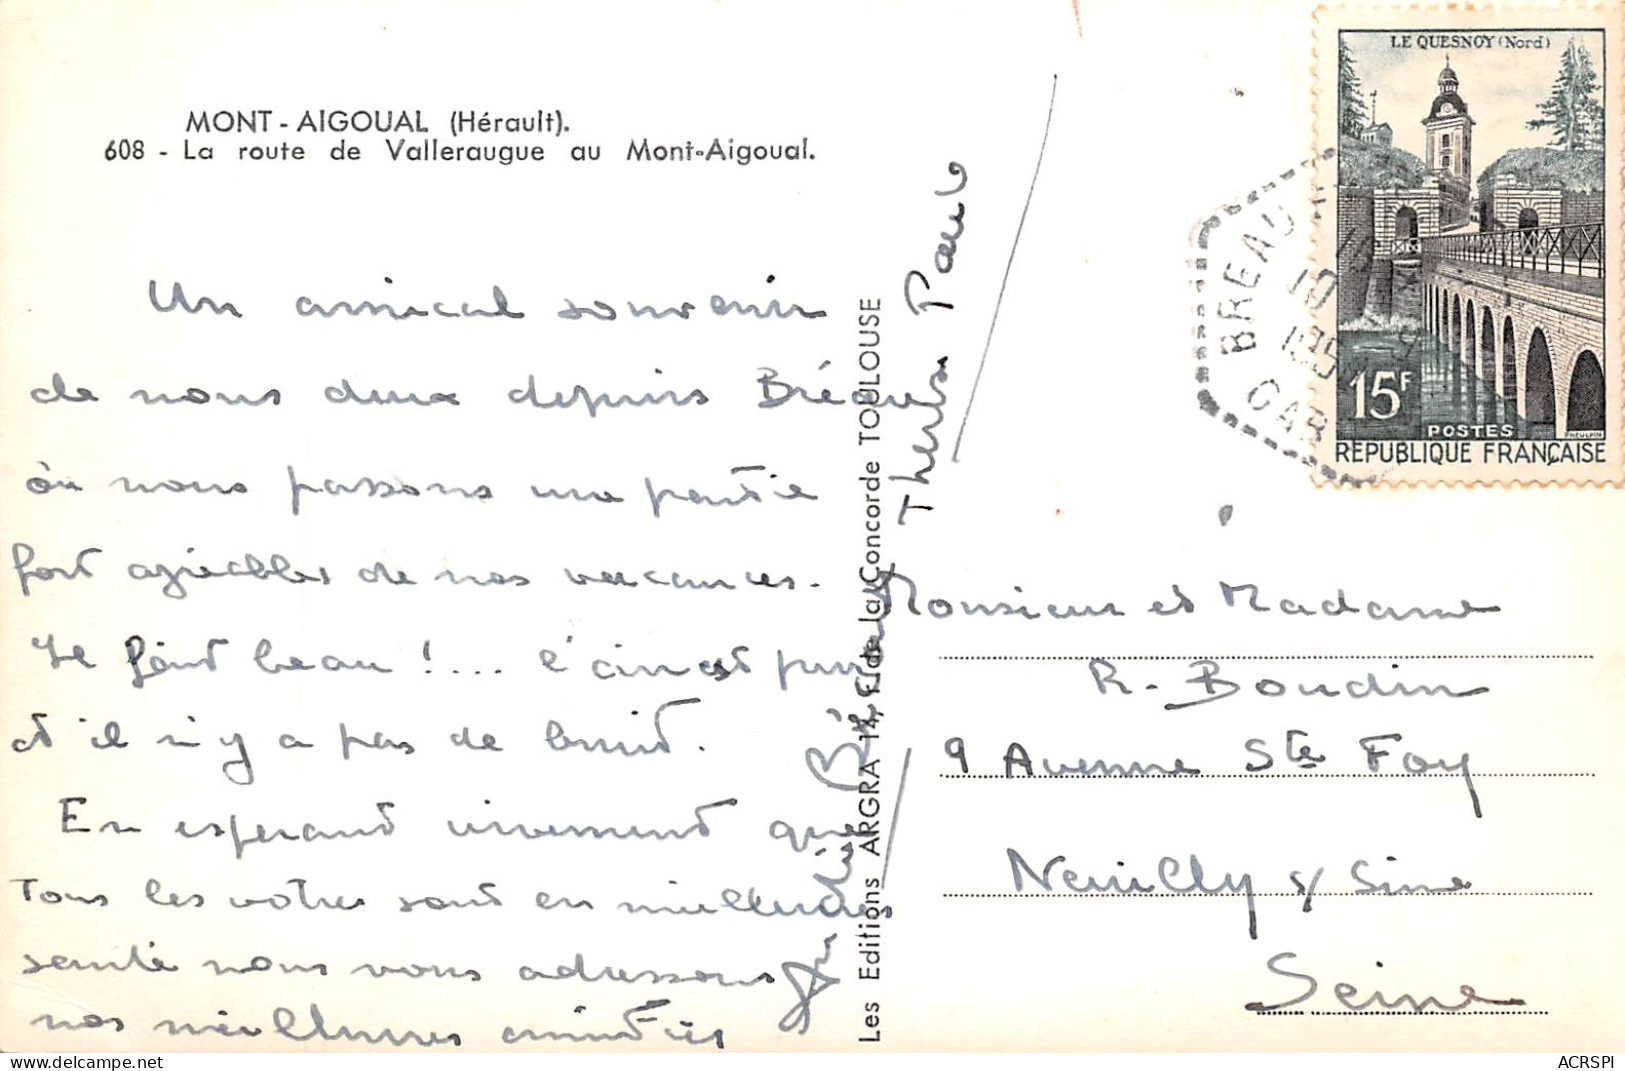 MONT-AIGOUAL (Hérault).
608 - La route de Valleraugue au Mont-Aigoual.
Un amical souvenir
de nous deux depuis Bréau
où nous passons une partie
fort agréables de nos vacances.
Il fait beau !... l'air est pur
et il n'y a pas de bruit.
En esperant vivement que
tous les votres sont en meilleures
santé nous vous adressons
nos meilleures amitiés
Paul
Les Editions ARGRA 14, r. de la Concorde TOULOUSE
LE QUESNOY (Nord)
15F
POSTES
REPUBLIQUE FRANÇAISE
BREAU
10
195
GAR
Monsieur et Madame
R. Boudin
9 Avenue Ste Foy
Neuilly s/ Seine
Seine
ACRSPI